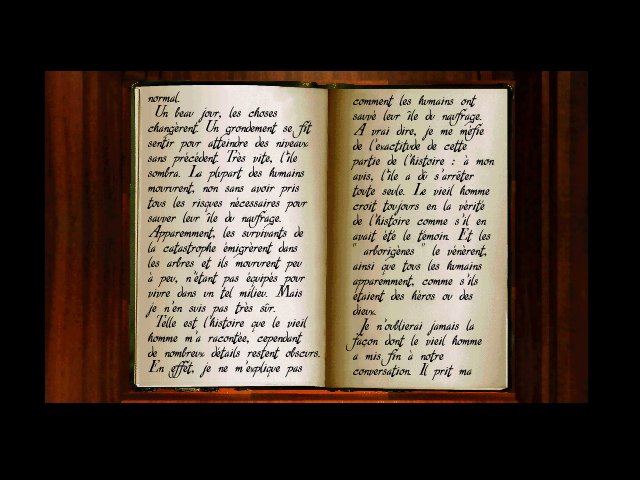 normal.
Un beau jour, les choses
changèrent. Un grondement se fit
sentir pour atteindre des niveaux
sans précédent. Très vite, l'île
sombra. La plupart des humains
moururent, non sans avoir pris
tous les risques nécessaires pour
sauver leur île du naufrage.
Apparemment, les survivants de
la catastrophe émigrèrent dans
les arbres et ils moururent peu
à peu, n'étant pas équipés pour
vivre dans un tel milieu. Mais
je n'en suis pas très sûr.
Telle est l'histoire que le vieil
homme m'a racontée, cependant
de nombreux détails restent obscurs.
En effet, je ne m'explique pas
comment les humains ont
sauvé leur île du naufrage.
A vrai dire, je me méfie
de l'exactitude de cette
partie de l'histoire : à mon
avis, l'île a dû s'arrêter
toute seule. Le vieil homme
croit toujours en la vérité
de l'histoire comme s'il en
avait été le témoin. Et les
" arborigènes " le vénèrent,
ainsi que tous les humains
apparemment, comme s'ils
étaient des héros ou des
dieux.
Je n'oublierai jamais la
façon dont le vieil homme
a mis fin à notre
conversation. Il prit ma